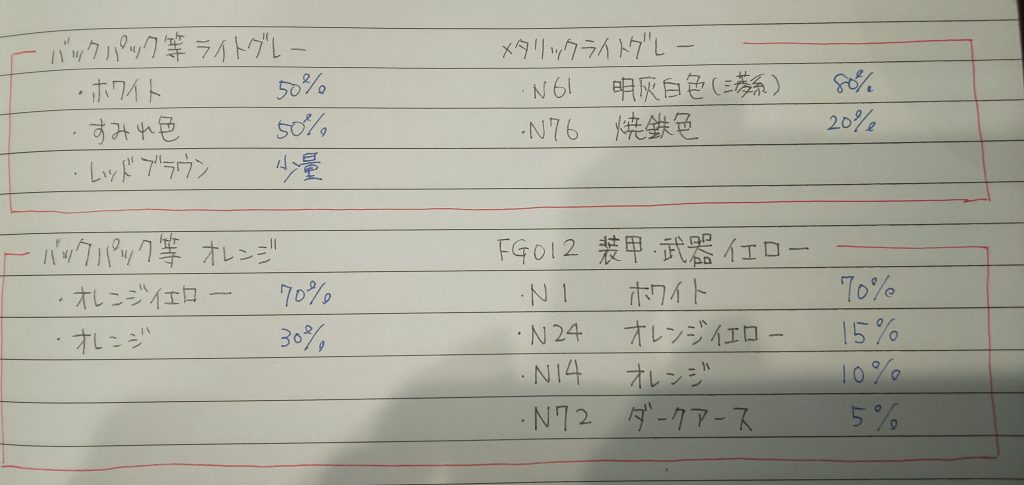 バックパック等 ライトグレー
・ホワイト 50%
・すみれ色 50%
・レッドブラウン 少量
メタリックライトグレー
・N61 明灰白色(三菱系) 80%
・N76 焼鉄色 20%
バックパック等 オレンジ
・オレンジイエロー 70%
・オレンジ 30%
FG012 装甲・武器イエロー
・N1 ホワイト 70%
・N24 オレンジイエロー 15%
・N14 オレンジ 10%
・N72 ダークアース 5%